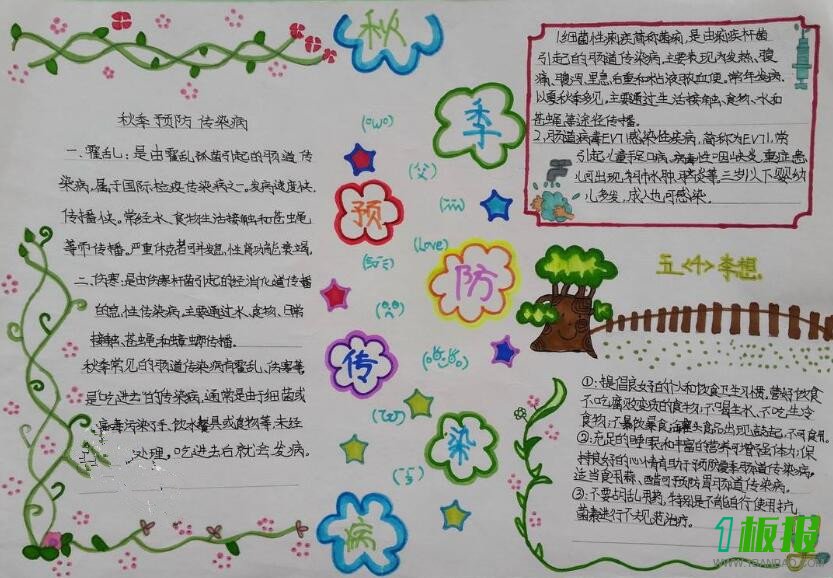 秋
季
预
防
传
染
病
(OWO)
(Love)
秋季预防传染病
一、霍乱:是由霍乱弧菌引起的肠道传
染病,属于国际检疫传染病之一。发病速度快.
传播快。常经水、食物生活接触和苍蝇
等而传播。严重休克者可并发急性肾功能衰竭。
二、伤寒:是由伤寒杆菌引起的经消化道传播
的急性传染病.主要通过水、食物、日常
接触、苍蝇和蟑螂传播.
秋季常见的肠道传染病有霍乱、伤寒等
是"吃进去"的传染病,通常是由于细菌或
病毒污染手、饮水餐具或食物等,未经
处理。吃进去后就会发病。
1.细菌性痢疾简称菌痢,是由痢疾杆菌
引起的肠道传染病,主要表现为发热、腹
痛、腹泻、里急后重和粘液脓血便。常年发病.
以夏秋季多见。主要通过生活接触、食物、水和
苍蝇等途径传播。
2.肠道病毒EV71感染性疾病,简称为EV71,常
引起儿童手足口病、病毒性咽峡炎重症患
儿可出现、肺水肿、脑炎等,三岁以下婴幼
儿多发,成人也可感染.
五〈4〉李想
①:提倡良好的个人和饮食卫生习惯。管好饮食
不吃腐败变质的食物:不喝生水、不吃生冷
食物;不暴饮暴食;罐头食品出现鼓起,不可食用。
②充足的睡眠和丰富的营养可增强体力,保
持良好的心情有助于预防夏季肠道传染病。
适当食用蒜、醋可预防胃肠道传染病。
③:不要胡乱用药,特别是不能自行使用抗
菌素进行不规范治疗。
1板报
WWW.1BANBAO.COM